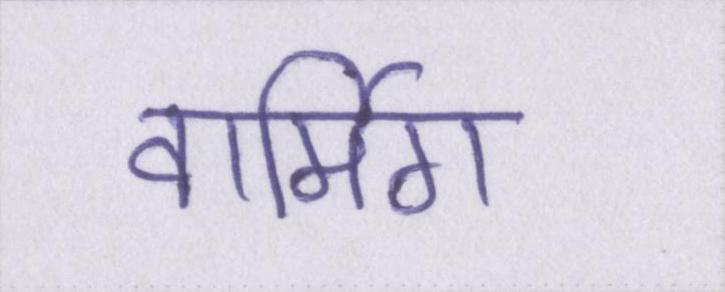 वार्मिग